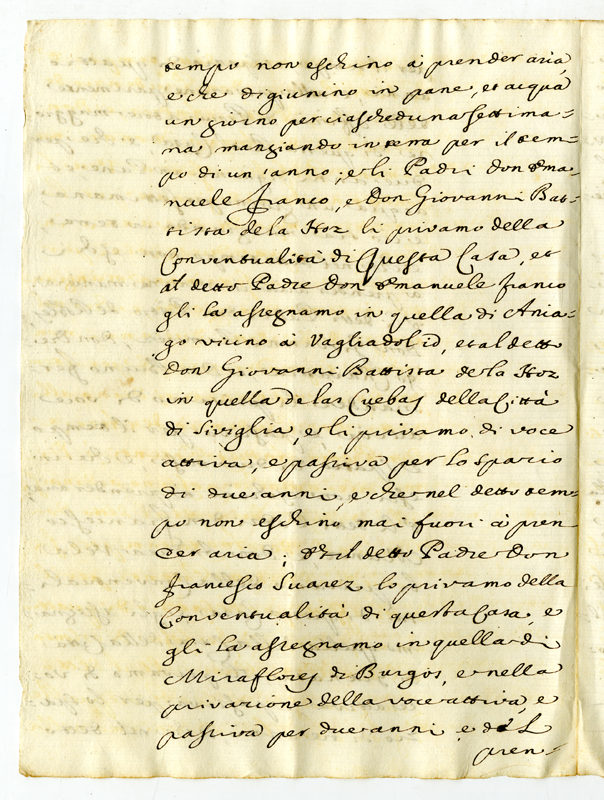 tempo non eschino à prender aria,
e che digiunino in pane, et acqua
un giorno per ciascheduna settima=
na mangiando in terra per il tem=
po di un'anno; e li Padri Don Ema=
nuele Franco, e Don Giovanni Bat=
tista de la Hoz li privamo della
Conventualità di Questa Casa, et
al detto Padre Don Emanuele Franco
gli la assegnamo in quella di Ania=
go vicino à Vagliadolid, et al detto
Don Giovanni Battista de la Hoz
in quella de las Cuebas della Città
di Siviglia, e li privamo di voce
attiva, e passiva per lo spazio
di due anni, e che nel detto tem=
po non eschino mai fuori à pren
der aria; Et il detto Padre Don
Francesco Suarez lo privamo della
Conventualità di questa Casa, e
gli la assegnamo in quella di
Miraflores di Burgos, e nella
privazione della voce attiva, e
passiva per due anni, e del
pren=